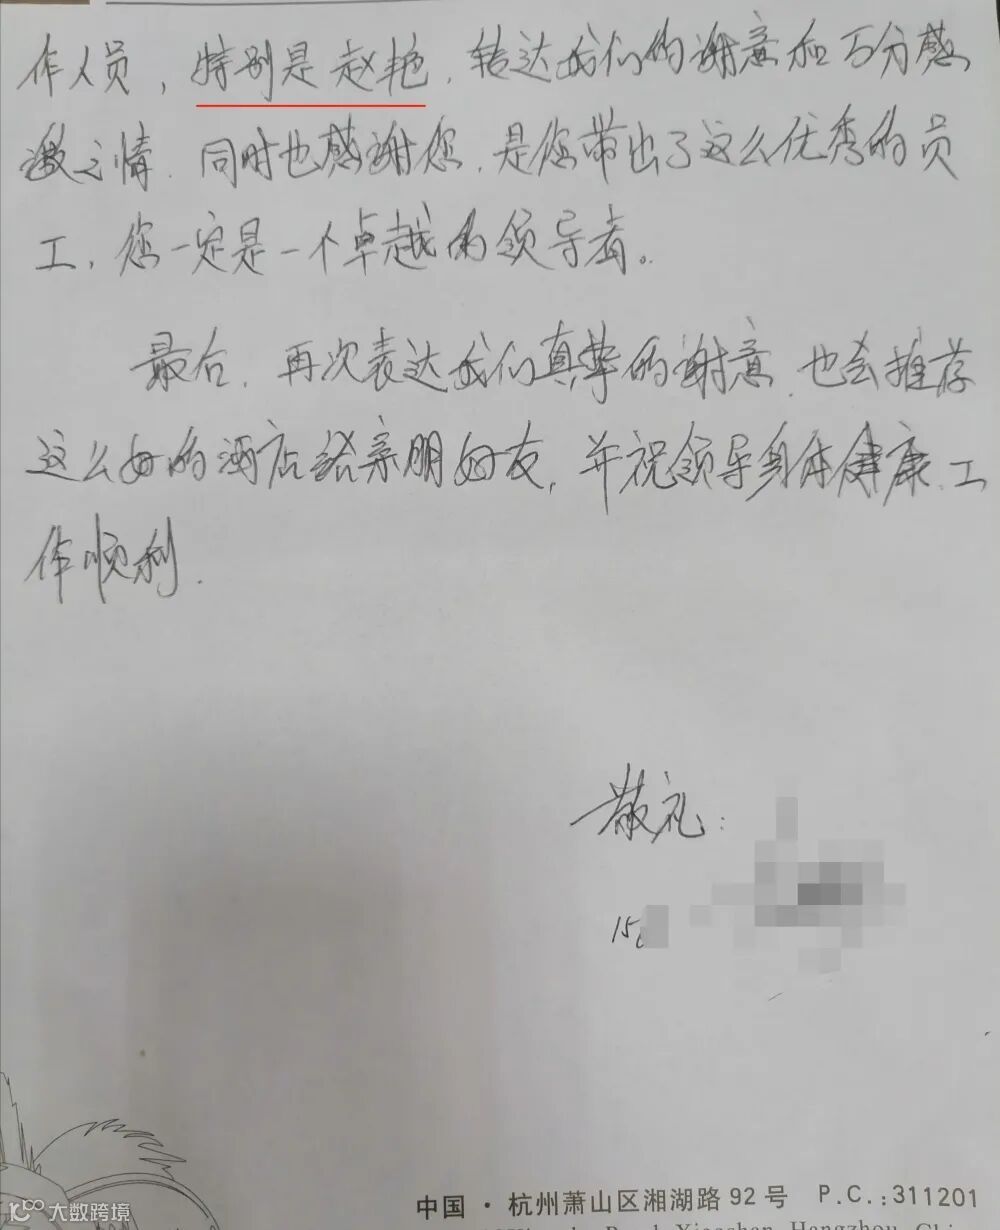 作人员，特别是赵艳，转达我们的谢意和万分感
激之情．同时也感谢您，是您带出了这么优秀的员
工，您一定是一个卓越的领导者。
最后，再次表达我们真挚的谢意，也会推荐
这么好的酒店给亲朋好友，并祝领导身体健康、工
作顺利．
敬礼：
15
中国·杭州萧山区湘湖路92号 P.C.:311201
大数跨境